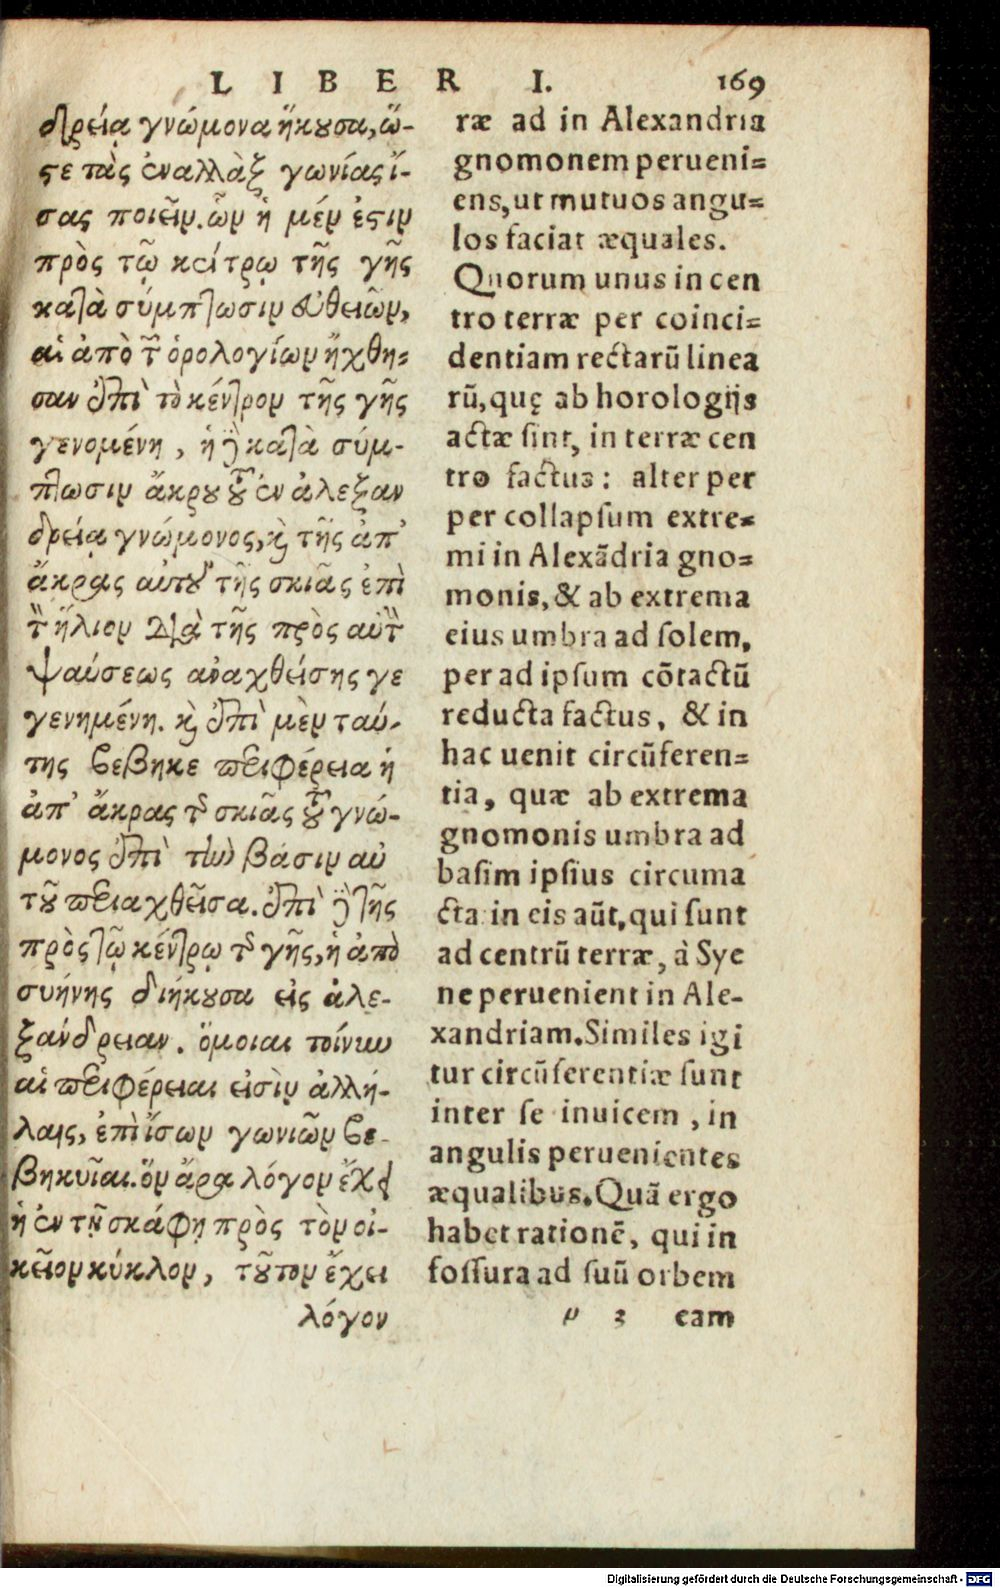 LIBER I. 169
δρείᾳ γνώμονα ἥκουσα, ὥ-
στε τὰς ἐναλλὰξ γωνίας ἴ-
σας ποιεῖν. ὧν ἡ μέν ἐστιν
πρὸς τῷ κέντρῳ τῆς γῆς
κατὰ σύμπτωσιν εὐθειῶν,
αἱ ἀπὸ τῶν ὁρολογίων ἤχθη-
σαν ἐπὶ τὸ κέντρον τῆς γῆς
γενομένη, ἡ δὲ κατὰ σύμ-
πτωσιν ἄκρου τοῦ ἐν ἀλεξαν
δρείᾳ γνώμονος, καὶ τῆς ἀπ'
ἄκρας αὐτοῦ τῆς σκιᾶς ἐπὶ
τὸν ἥλιον διὰ τῆς πρὸς αὐτὸν
ψαύσεως ἀναχθείσης γε
γενημένη. καὶ ἐπὶ μὲν ταύ-
της βέβηκε περιφέρεια ἡ
ἀπ' ἄκρας τῆς σκιᾶς τοῦ γνώ-
μονος ἐπὶ τὴν βάσιν αὐ
τοῦ περιαχθεῖσα. ἐπὶ δὲ τῆς
πρὸς τῷ κέντρῳ τῆς γῆς, ἡ ἀπὸ
συήνης διήκουσα εἰς ἀλε-
ξάνδρειαν. ὅμοιαι τοίνυν
αἱ περιφέρειαι εἰσὶν ἀλλή-
λαις, ἐπὶ ἴσων γωνιῶν βε-
βηκυῖαι. ὃν ἄρα λόγον ἔχει
ἡ ἐν τῇ σκάφῃ πρὸς τὸν οἰ-
κεῖον κύκλον, τοῦτον ἔχει
λόγον
ræ ad in Alexandria
gnomonem perueni=
ens, ut mutuos angu=
los faciat æquales.
Quorum unus in cen
tro terræ per coinci=
dentiam rectarũ linea
rũ, quę ab horologijs
actæ sint, in terræ cen
tro factus: alter per
per collapsum extre=
mi in Alexãdria gno=
monis, & ab extrema
eius umbra ad solem,
per ad ipsum cõtactũ
reducta factus, & in
hac uenit circũferen=
tia, quæ ab extrema
gnomonis umbra ad
basim ipsius circuma
cta: in eis aũt, qui sunt
ad centrũ terræ, à Sye
ne peruenient in Ale-
xandriam. Similes igi
tur circũferentiæ sunt
inter se inuicem, in
angulis peruenientes
æqualibus. Quã ergo
habet rationẽ, qui in
fossura ad suũ orbem
μ 3 eam
Digitalisierung gefördert durch die Deutsche Forschungsgemeinschaft - DFG